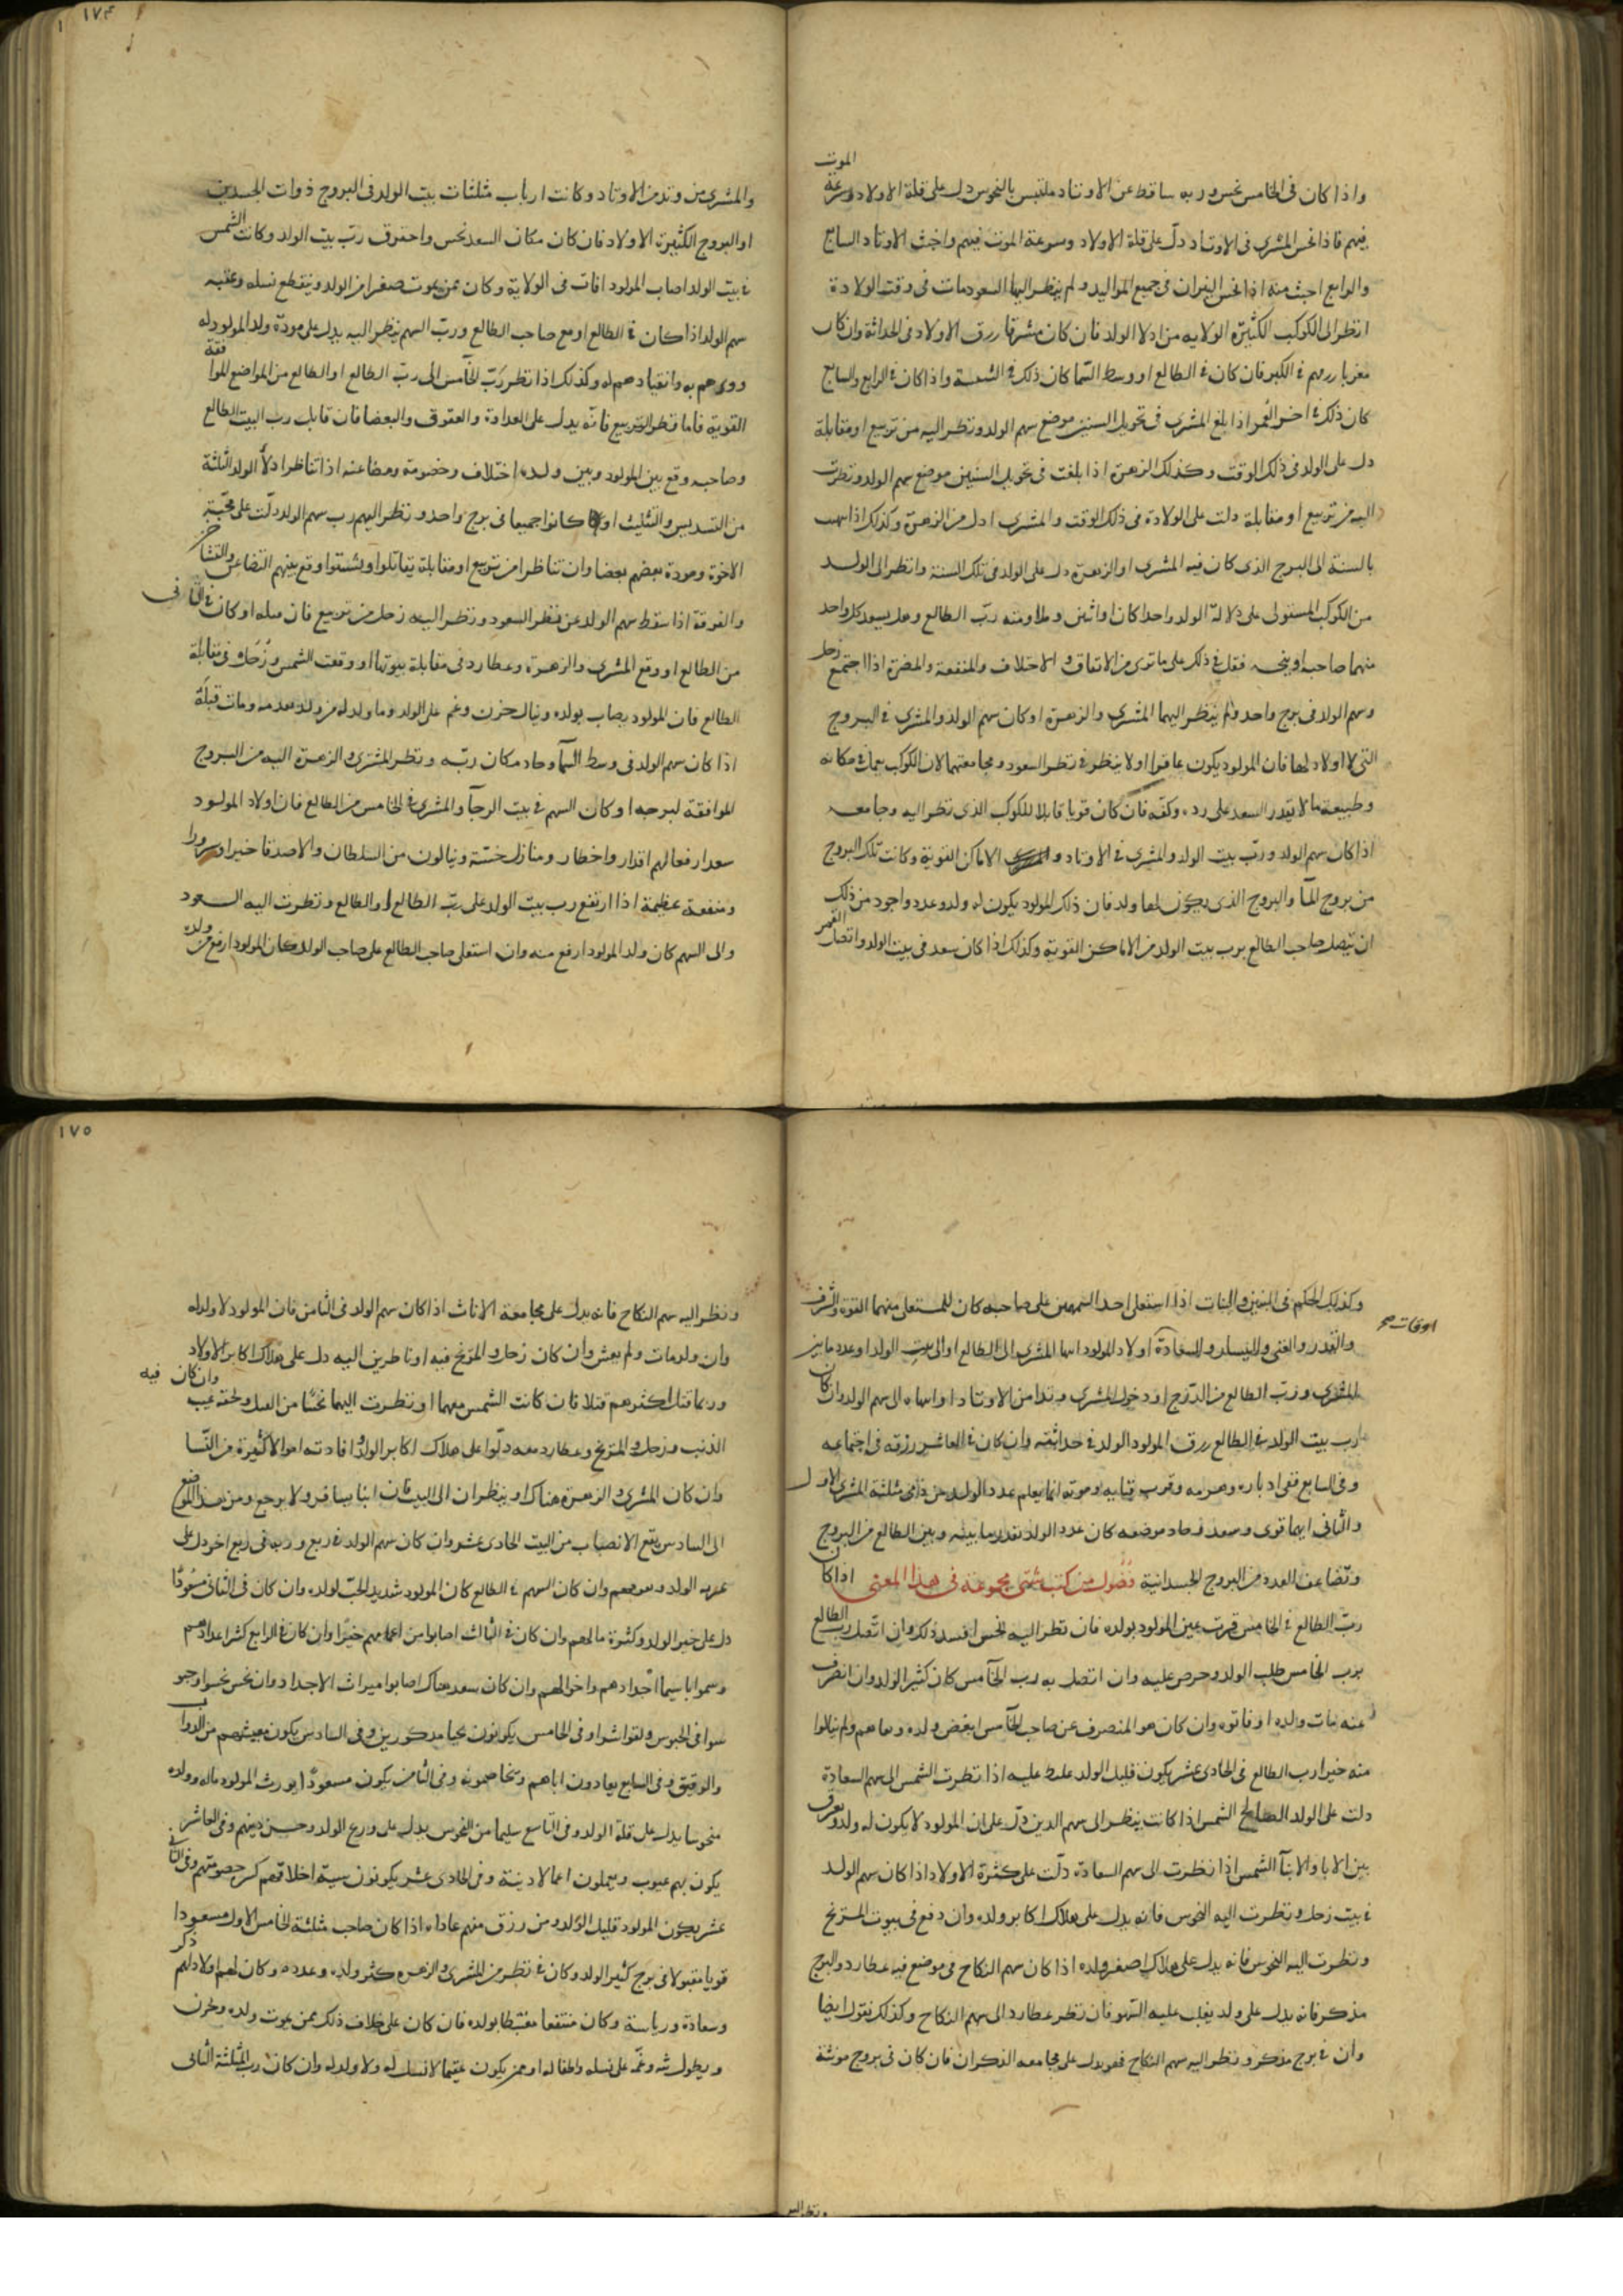 الموت
واذا كان فى الخامس نحس وربه ساقط عن الاوتاد ملتبس بالنحوس دل على قلة الاولاد وسرعة
فيهم فاذا نحس المشترى فى الاوتاد دلّ على قلة الاولاد وسرعة الموت فيهم واخبث الاوتاد السابع
والرابع اخبث منه اذا نحس النيران فى جميع المواليد ولم ينظر اليها السعود مات فى وقت الولادة
انظر الى الكوكب الكثيرة الولاية من ادلاء الولد فان كان مشرقا رزق الاولاد فى الحداثة وان كان
مغربا رزقهم فى الكبر فان كان فى الطالع او وسط السّما كان ذلك فى الشبيبة واذا كان فى الرابع والسابع
كان ذلك فى اخر العُمر اذا بلغ المشترى فى تحويل السنين موضع سهم الولد ونظر اليه من تربيع او مقابلة
دل على الولد فى ذلك الوقت وكذلك الزهرة اذا بلغت فى تحويل السنين موضع سهم الولد ونظرت
اليه من تربيع او مقابلة دلت على الولادة فى ذلك الوقت والمشترى ادل من الزهرة وكذلك اذا انتهت
بالسنة الى البرج الذى كان فيه المشترى او الزهرة دل على الولد فى تلك السنة وانظر الى الولد
من الكوكب المستولى على دلالة الولد واحدا كان او اثنين وملاومته ربّ الطالع وهل يسعد كل واحد
منهما صاحبه او ينحسه فقل فى ذلك على ما ترى من الاتفاق والاختلاف والمنفعة والمضرة اذا اجتمع زحل
وسهم الولد فى برج واحد ولم ينظر اليهما المشترى والزهرة او كان سهم الولد والمشترى فى البروج
التى لا اولاد لها فان المولود يكون عاقرا او لا ينظر فى نظر السعود ومجامعتهما لان الكوكب يعمل فى مكانه
وطبيعته ما لا يقدر السعد على رده وكفه فان كان قويا قابلا للكوكب الذى نظر اليه وجامعه
اذا كان سهم الولد وربّ بيت الولد والمشترى فى الاوتاد و الاماكن القوية وكانت تلك البروج
من بروج المآ والبروج الذى يكون لها ولد فان ذلك المولود يكون له ولد وعدد واجود من ذلك
ان يتصل صاحب الطالع برب بيت الولد من الاماكن القوية وكذلك اذا كان سعد فى بيت الولد واتصل القمر
١٧٤
والمشترى من وتد من الاوتاد وكانت ارباب مثلثات بيت الولد فى البروج ذوات الجسدين
او البروج الكثيرة الاولاد فان كان مكان السعد نحس واحترق ربّ بيت الولد وكانت الشمس
فى بيت الولد اصاب المولود افات فى الولاية وكان ممن يموت صغرا من الولد وينقطع نسله وعقبه
سهم الولد اذا كان فى الطالع او مع صاحب الطالع وربّ السهم ينظر اليه يدل على مودّة ولد المولود له
وبرهم به وانقيادهم له وكذلك اذا نظر ربّ الخآمس الى ربّ الطالع او الطالع من المواضع الموافقة
القوية فاما نظر التربيع فانّه يدل على العداوة والعقوق والبعضا فان قابل رب البيت الطالع
وصاحبه وقع بين المولود وبين ولده اختلاف وخصومة ومضاعنه اذا تناظرا دلاّ الولد الثلثة
من التسديس والتثليث او كانوا جميعا فى برج واحد ونظر اليهم رب سهم الولد دلّت على محبّة
الاخوة ومودة بعضهم بعضا وان تناظرا من تربيع او مقابلة تقاتلوا وتشتتوا وقع بينهم التضاعن والتشاجر
والفرقة اذا سقط سهم الولد عن نظر السعود ونظر اليه زحل من تربيع فان مثله او كان فى الثانى
من الطالع او وقع المشترى والزهرة وعطارد فى مقابلة بيوتها او وقعت الشمس وزحل فى مقابلة
الطالع فان المولود يصاب بولده وينال حزن وغم على الولد وما ولد له من ولد بعدمه ومات قبله
اذا كان سهم الولد فى وسط السمآ وجاد مكان ربّه ونظر المشترى والزهرة اليه من البروج
الموافقة لبرجه او كان السهم فى بيت الرجآ والمشترى فى الخامس من الطالع فان اولاد المولود
سعدا رفعا لهم اقدار واخطار ومنازل حسنة وينالون من السلطان والاصدقا خيرا وسرورا
ومنفعة عظيمة اذا ارتفع رب بيت الولد على ربّ الطالع او الطالع ونظرت اليه السعود
والى السهم كان ولد المولود ارفع منه وان استعلى صاحب الطالع على صاحب الولد كان المولود ارفع من ولده
وكذلك الحكم فى البنين والبنات اذا استعلى احد السهمين على صاحبه كان للمستعلى منهما القوة والشرف
والقدر والغنى واليسار والسعادة اولاد المولود انتها المشترى الى الطالع او الى بيت الولد او عدد ما بين
المشترى وربّ الطالع من الدّرج او دخول المشترى وتدا من الاوتاد او انتهاه الى سهم الولد وان كان
رب بيت الولد فى الطالع رزق المولود الولد فى حداثته وان كان فى العاشر رزقه فى اجتماعه
وفى السابع ففى ادباره وهرمه وقرب فنايه وموته انما يعلم عدد الولد من ذلك مثلثة المشترى الاول
والثانى ايهما قوى وسعد وجاد موضعه كان عدد الولد بقدر ما بينه وبين الطالع من البروج
وتضاعف العدد من البروج الجسدانية فصول من كتب شتى مجموعة فى هذا المعنى اذا كان
ربّ الطالع فى الخامس قرت عين المولود بولده فان نظر اليه نحس افسد ذلك وان اتصل رب الطالع
برب الخامس طلب الولد وحرص عليه وان اتصل به رب الخآمس كان كثير الولد وان انصرف
عنه مات ولده او فاتوه وان كان هو المنصرف عن صاحب الخآمس ابغض ولده وم ينالوا
منه خيرا رب الطالع فى الحادى عشر يكون قليل الولد اذا نظرت الشمس الى سهم السعادة
دلت على الولد الصالح الشمس اذا كانت ينظر الى سهم الدين دلّ على ان المولود لا يكون له ولد ويفرق
بين الابا والابنآ الشمس اذا نظرت الى سهم السعادة دلّت على كثرة الاولاد اذا كان سهم الولد
فى بيت زحل ونظرت اليه النحوس فانه يدل على هلاك اكابر ولده وان وقع فى بيوت المريخ
ونظرت اليه النحوس فانه يدل على هلاك اصغر ولده اذا كان سهم النكاح فى موضع فيه عطارد والبرج
مذكر فانه يدل على ولد يغلب عليه الشهو فان نظر عطارد الى سهم النكاح وكذلك نقول ايضا
وان فى برج مذكر ونظر اليه سهم النكاح فهو يدل على مجامعه الذكران فان كان فى بروج مونثة
١٧٥
ونظر اليه سهم النكاح فانه يدل على مجامعة الاناث اذا كان سهم الولد فى الثامن فان المولود لا ولد له
وان ولد مات ولم يعش وان كان زحل والمريخ فيه او ناظرين اليه دل على هلاك اكابر الاولاد
وربما قتل اكثرهم قتلا فان كانت الشمس معهما او نظرت اليهما نحسا من وان كان فيه
الذنب وزحل والمريخ وعطارد معه دلّوا على هلاك اكابر الولد وافادته اموالا كثيرة من النّسا
وان كان المشترى والزهرة هناك او ينظران الى البيت فان ابنا يسافر ولا يرجع ومن هذا الموضع
الى السادس يقع الانصباب من البيت الحادى عشر وان كان سهم الولد فى ربع وربه فى ربع اخر دل على
غربه الولد و وان كان السهم فى الطالع كان المولود شديد الحبّ لولده وان كان فى الثانى مسعودًا
دل على خير الولد وكثرة مالهم وان كان فى الثالث اصابوا من اعمامهم خيرًا وان كان فى الرابع كثر اعدادهم
وسموا باسما اجدادهم واخوالهم وان كان سعد هناك اصابوا ميراث الاجداد وان نحس نحسوا
سوا فى الحبوس ولقوا شرا وفى الخامس يكونون نحبا مذكورين وفى السادس يكون معيشتهم من الدواب
والرقيق وفى السابع يعادون اباهم ويخاصمونه وفى الثامن يكون مسعودًا يورث المولود ماله وولده
منحوسا يدل على قلة الولد وفى التّاسع سليما من النحوس يدل على ورع الولد وحسن دينهم وفى العاشر
يكون بهم عيوب ويعملون اعمالا دنية وفى الحادى عشر يكونون سيئة اخلاقهم وفى الثانى
عشر يكون المولود قليل الولد ومن رزق منهم عاداه اذا كان صاحب مثلثة الخامس الاول مسعودا
قويا مقبولا فى برج كثير الولد وكان فى نظر من المشترى والزهرة كثر ولده وعدده وكان لهم اولادهم ذكر
وسعادة ورياسة وكان منتفعا مغتبطا بولده فان كان على خلاف ذلك ممن يموت ولده وحزن
ويطول بثه وغمّه على نسله واطفاله او ممن يكون عقيما لا نسل له ولا ولد له وان كان رب المثلثة الثانى